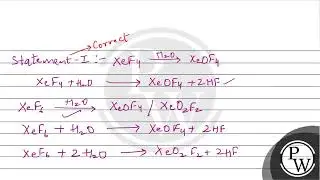 Correct
Statement-I :- XeF4 H2O→ XeOF4
XeF4 + H2O → XeOF4 + 2HF ✓
XeF6 H2O→ XeOF4 / XeO2F2
XeF6 + H2O → XeOF4 + 2HF
XeF6 + 2H2O → XeO2F2 + 2HF
PW